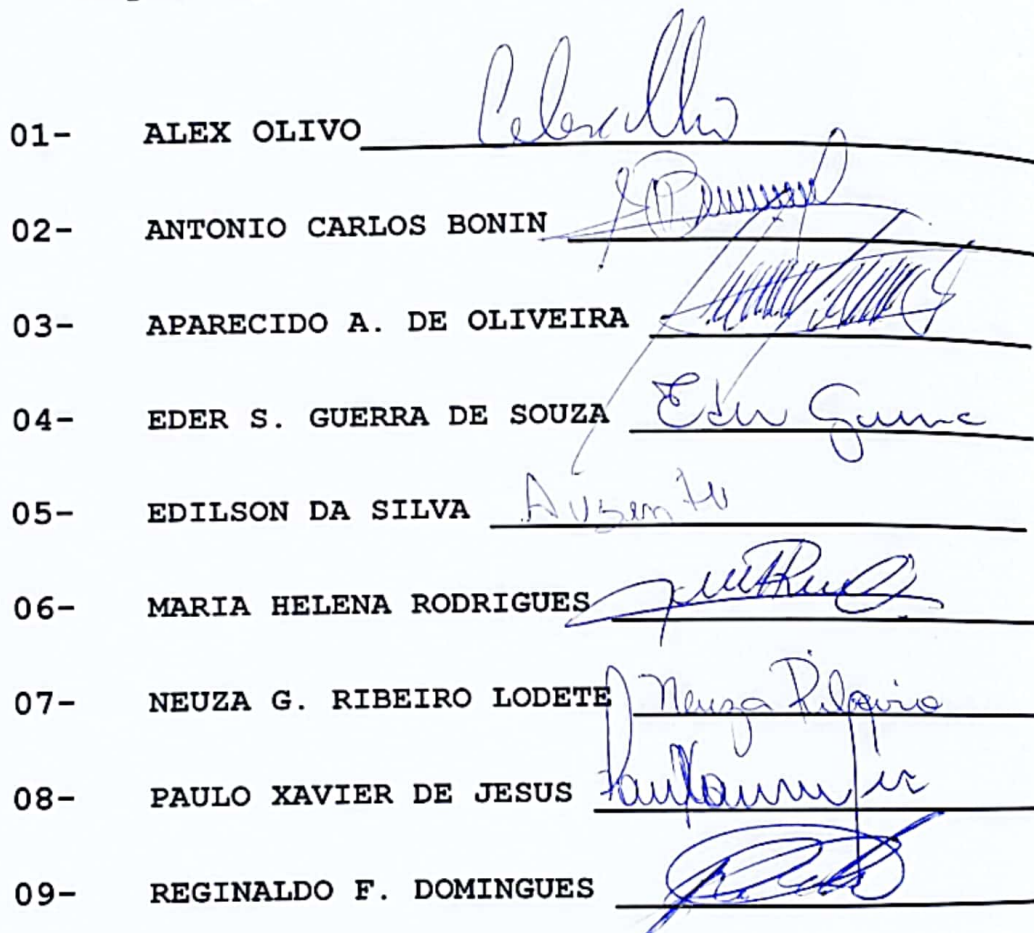 01- ALEX OLIVO
02- ANTONIO CARLOS BONIN
03- APARECIDO A. DE OLIVEIRA
04- EDER S. GUERRA DE SOUZA Eder Guerra
05- EDILSON DA SILVA Ausente
06- MARIA HELENA RODRIGUES
07- NEUZA G. RIBEIRO LODETE Neuza Ribeiro
08- PAULO XAVIER DE JESUS
09- REGINALDO F. DOMINGUES